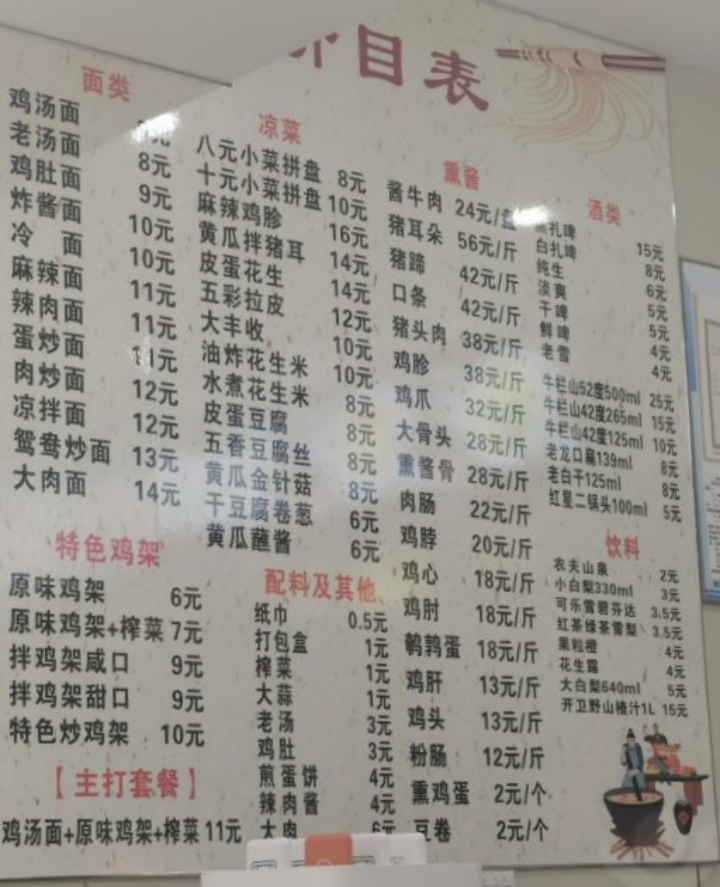 目表
面类
鸡汤面 元
老汤面 8元
鸡肚面 9元
炸酱面 10元
冷 面 10元
麻辣面 11元
辣肉面 11元
蛋炒面 11元
肉炒面 12元
凉拌面 12元
鸳鸯炒面 13元
大肉面 14元
特色鸡架
原味鸡架 6元
原味鸡架+榨菜 7元
拌鸡架咸口 9元
拌鸡架甜口 9元
特色炒鸡架 10元
【主打套餐】
鸡汤面+原味鸡架+榨菜 11元
凉菜
八元小菜拼盘 8元
十元小菜拼盘 10元
麻辣鸡胗 16元
黄瓜拌猪耳 14元
皮蛋花生 14元
五彩拉皮 12元
大丰收 10元
油炸花生米 10元
水煮花生米 8元
皮蛋豆腐 8元
五香豆腐丝 8元
黄瓜金针菇 8元
干豆腐卷葱 6元
黄瓜蘸酱 6元
配料及其他
纸巾 0.5元
打包盒 1元
榨菜 1元
大蒜 1元
老汤 3元
鸡肚 3元
煎蛋饼 4元
辣肉酱 4元
大肉 6元
熏酱
酱牛肉 24元/盘
猪耳朵 56元/斤
猪蹄 42元/斤
口条 42元/斤
猪头肉 38元/斤
鸡胗 38元/斤
鸡爪 32元/斤
大骨头 28元/斤
熏酱骨 28元/斤
肉肠 22元/斤
鸡脖 20元/斤
鸡心 18元/斤
鸡肘 18元/斤
鹌鹑蛋 18元/斤
鸡肝 13元/斤
鸡头 13元/斤
粉肠 12元/斤
熏鸡蛋 2元/个
豆卷 2元/个
酒类
黑扎啤 15元
白扎啤 8元
纯生 6元
淡爽 5元
干啤 5元
鲜啤 4元
老雪 4元
牛栏山52度500ml 25元
牛栏山42度265ml 15元
牛栏山42度125ml 10元
老龙口扁139ml 8元
老白干125ml 8元
红星二锅头100ml 5元
饮料
农夫山泉 2元
小白梨330ml 3元
可乐雪碧芬达 3.5元
红茶绿茶雪梨 3.5元
果粒橙 4元
花生露 4元
大白梨640ml 5元
开卫野山楂汁1L 15元